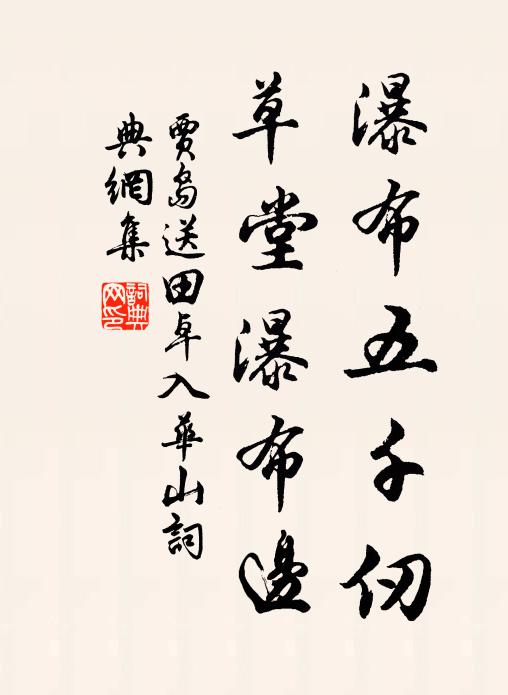 瀑布五千仞
草堂瀑布邊
賈島送田卓入華山詞
典網集
詞典網印